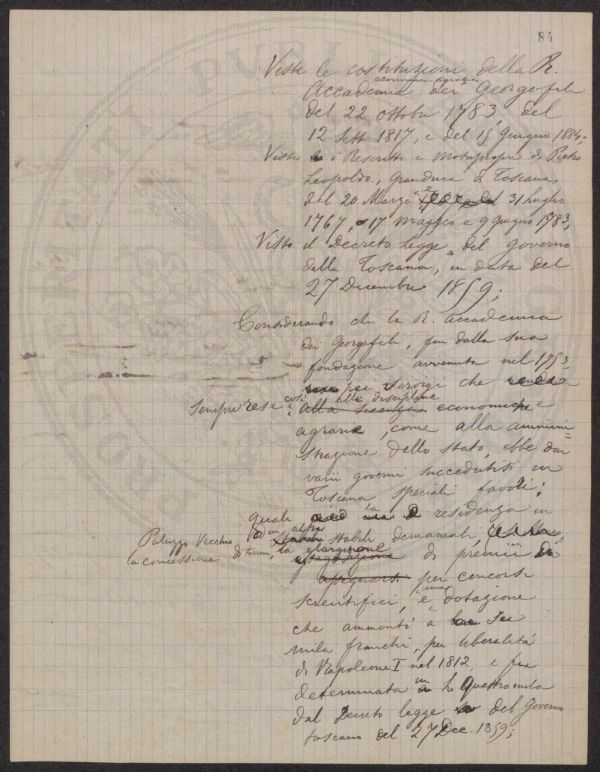 84
Viste le costituzioni della R.
economico-agraria
Accademia dei Georgofili
del 22 ottobre 1783, del
12 Sett 1817, e del 15 Giugno 1884;
Viste i Rescritti e Motupropri di Pietro
Leopoldo, Granduca di Toscana,
del 20 Marzo e 31 Luglio
1767, 17 Maggio e 9 Giugno 1783,
Visto il Decreto Legge del Governo
della Toscana, in data del
27 Dicembre 1859;
Considerando che la R. Accademia
dei Georgofili, fin dalla sua
fondazione avvenuta nel 1753
servigi che
sempre rese così alle discipline
alla economiche e
agrarie, come alla ammini=
strazione dello Stato, ebbe dai
varii governi succedutisi in
Toscana speciali favori;
quali la residenza in
Palazzo Vecchio stabili demaniali,
la concessione di terreni, la elargizione di premii di
assegnarsi per concorsi
scientifici, e una dotazione
che ammontò a Sei
mila franchi, per liberalità
di Napoleone I nel 1812, e fu
determinata in L. Quattromila
dal Decreto legge del Governo
toscano del 27 Dec. 1859;